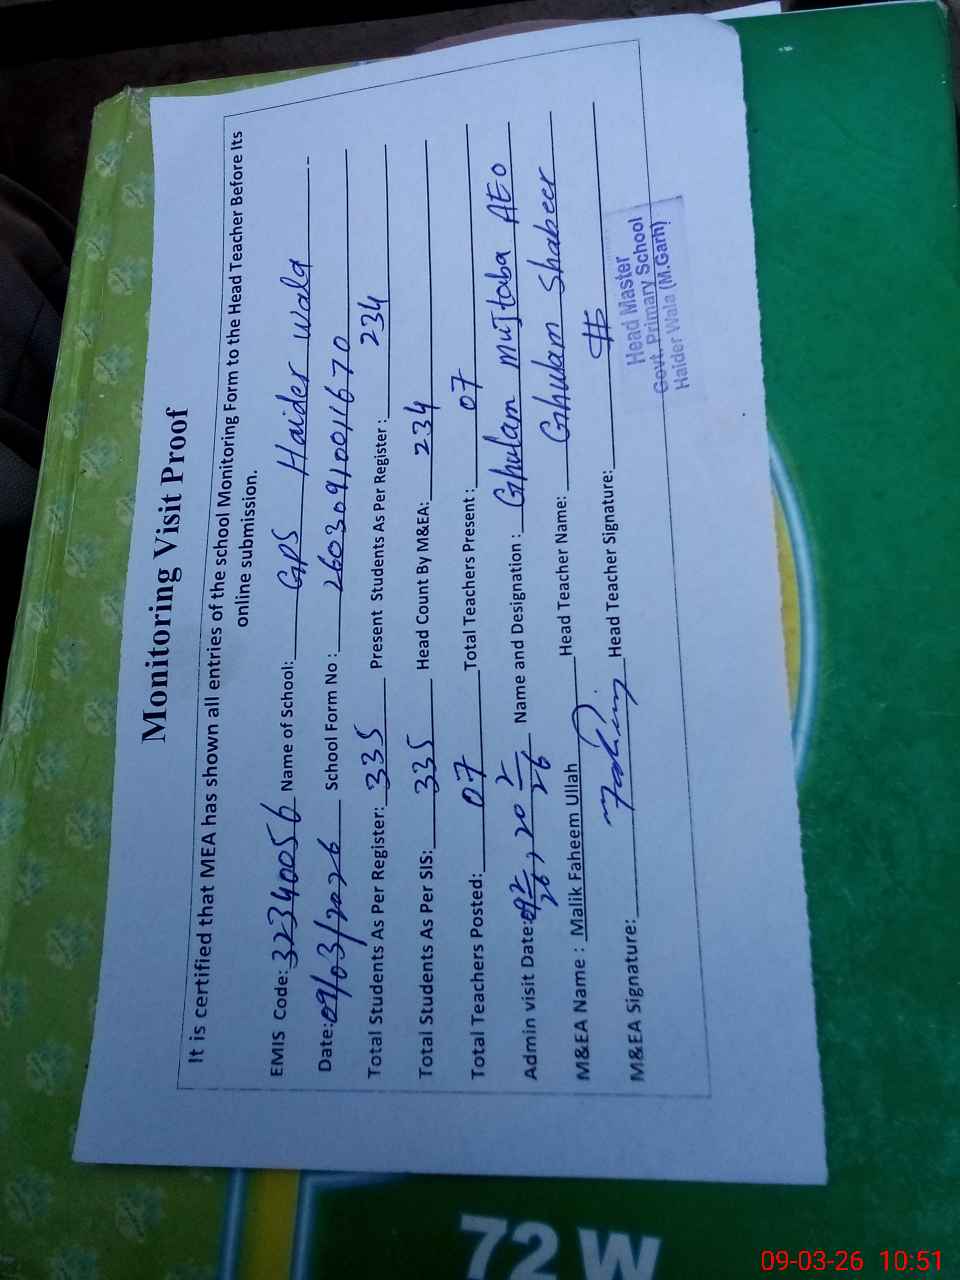 Monitoring Visit Proof
It is certified that MEA has shown all entries of the school Monitoring Form to the Head Teacher Before Its
online submission.
EMIS Code: 32340056 Name of School: GPS Haider wala
Date: 09/03/2026 School Form No :
Total Students As Per Register: 335 Present Students As Per Register : 234
Total Students As Per SIS: 335 Head Count By M&EA: 234
Total Teachers Posted: 07 Total Teachers Present : 07
Admin visit Date: Name and Designation : Ghulam mujtaba AEO
M&EA Name : Malik Faheem Ullah Head Teacher Name: Ghulam Shabeer
M&EA Signature: Head Teacher Signature:
Head Master
Govt. Primary School
Haider Wala (M.Garh)
72 W
09-03-26 10:51